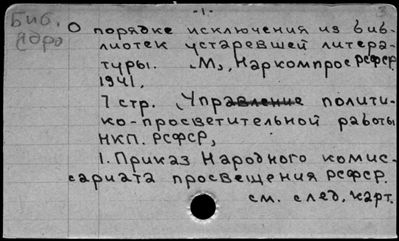 -1-
3
Биб.
Ядро
О порядке исключения из биб-
лиотек устаревшей литера-
туры. М., Наркомпрос РСФСР
1941.
7 стр. (Управление полити-
ко-просветительной работы
НКП. РСФСР,
1. Приказ Народного комис-
сариата просвещения РСФСР.
см. след. карт.